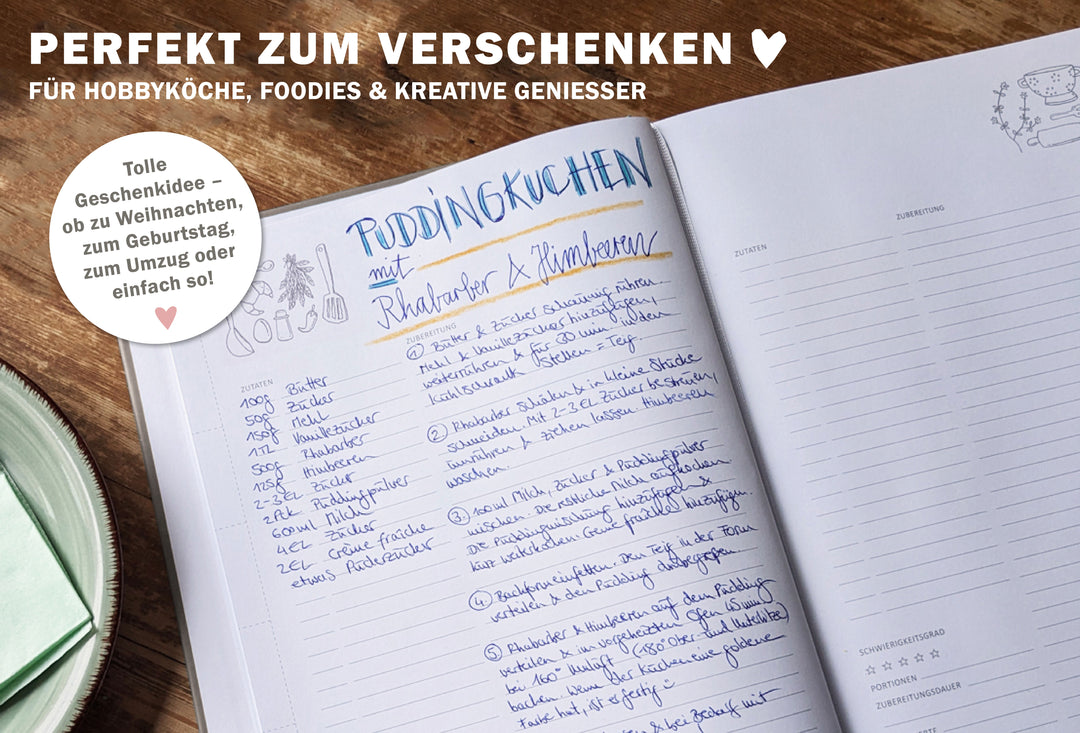 PERFEKT ZUM VERSCHENKEN
FÜR HOBBYKÖCHE, FOODIES & KREATIVE GENIESSER
Tolle
Geschenkidee –
ob zu Weihnachten,
zum Geburtstag,
zum Umzug oder
einfach so!
PUDDINGKUCHEN
mit
Rhabarber & Himbeeren
ZUTATEN
100g Butter
50g Zucker
150g Mehl
1TL Vanillezucker
500g Rhabarber
125g Himbeeren
2-3 EL Zucker
2 Pck Puddingpulver
600ml Milch
4EL Zucker
2EL crème fraîche
etwas Puderzucker
ZUBEREITUNG
① Butter & Zucker schaumig rühren.
Mehl & Vanillezucker hinzufügen,
weiterrühren & für 30 min. in den
Kühlschrank stellen = Teig.
② Rhabarber schälen & in kleine Stücke
schneiden. Mit 2-3 EL Zucker bestreuen,
umrühren & ziehen lassen. Himbeeren
waschen.
③ 100ml Milch, Zucker & Puddingpulver
mischen. Die restliche Milch aufkochen.
Die Puddingmischung hinzufügen &
kurz weiterkochen. Creme fraîche hinzufügen.
④ Backform einfetten. Den Teig in der Form
verteilen & den Pudding
⑤ Rhabarber & Himbeeren auf dem Pudding
verteilen & im vorgeheizten Ofen 45 min
bei 160° Umluft (180° Ober- und Unterhitze)
backen. Wenn der Kuchen eine goldene
Farbe hat, ist er fertig
& bei Bedarf mit
ZUTATEN
ZUBEREITUNG
SCHWIERIGKEITSGRAD
PORTIONEN
ZUBEREITUNGSDAUER